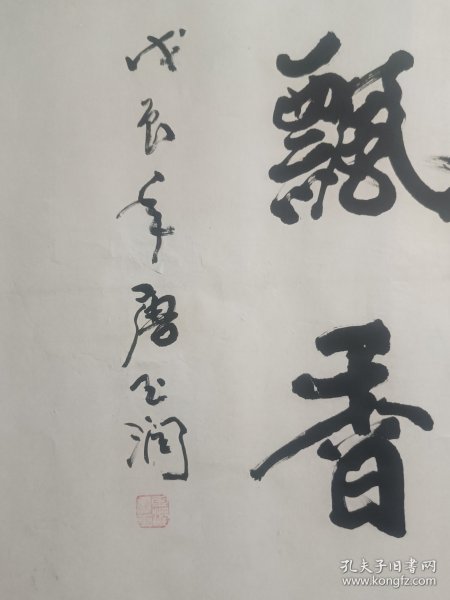 飘香
戊辰年唐玉润
孔夫子旧书网
www.kongfz.com